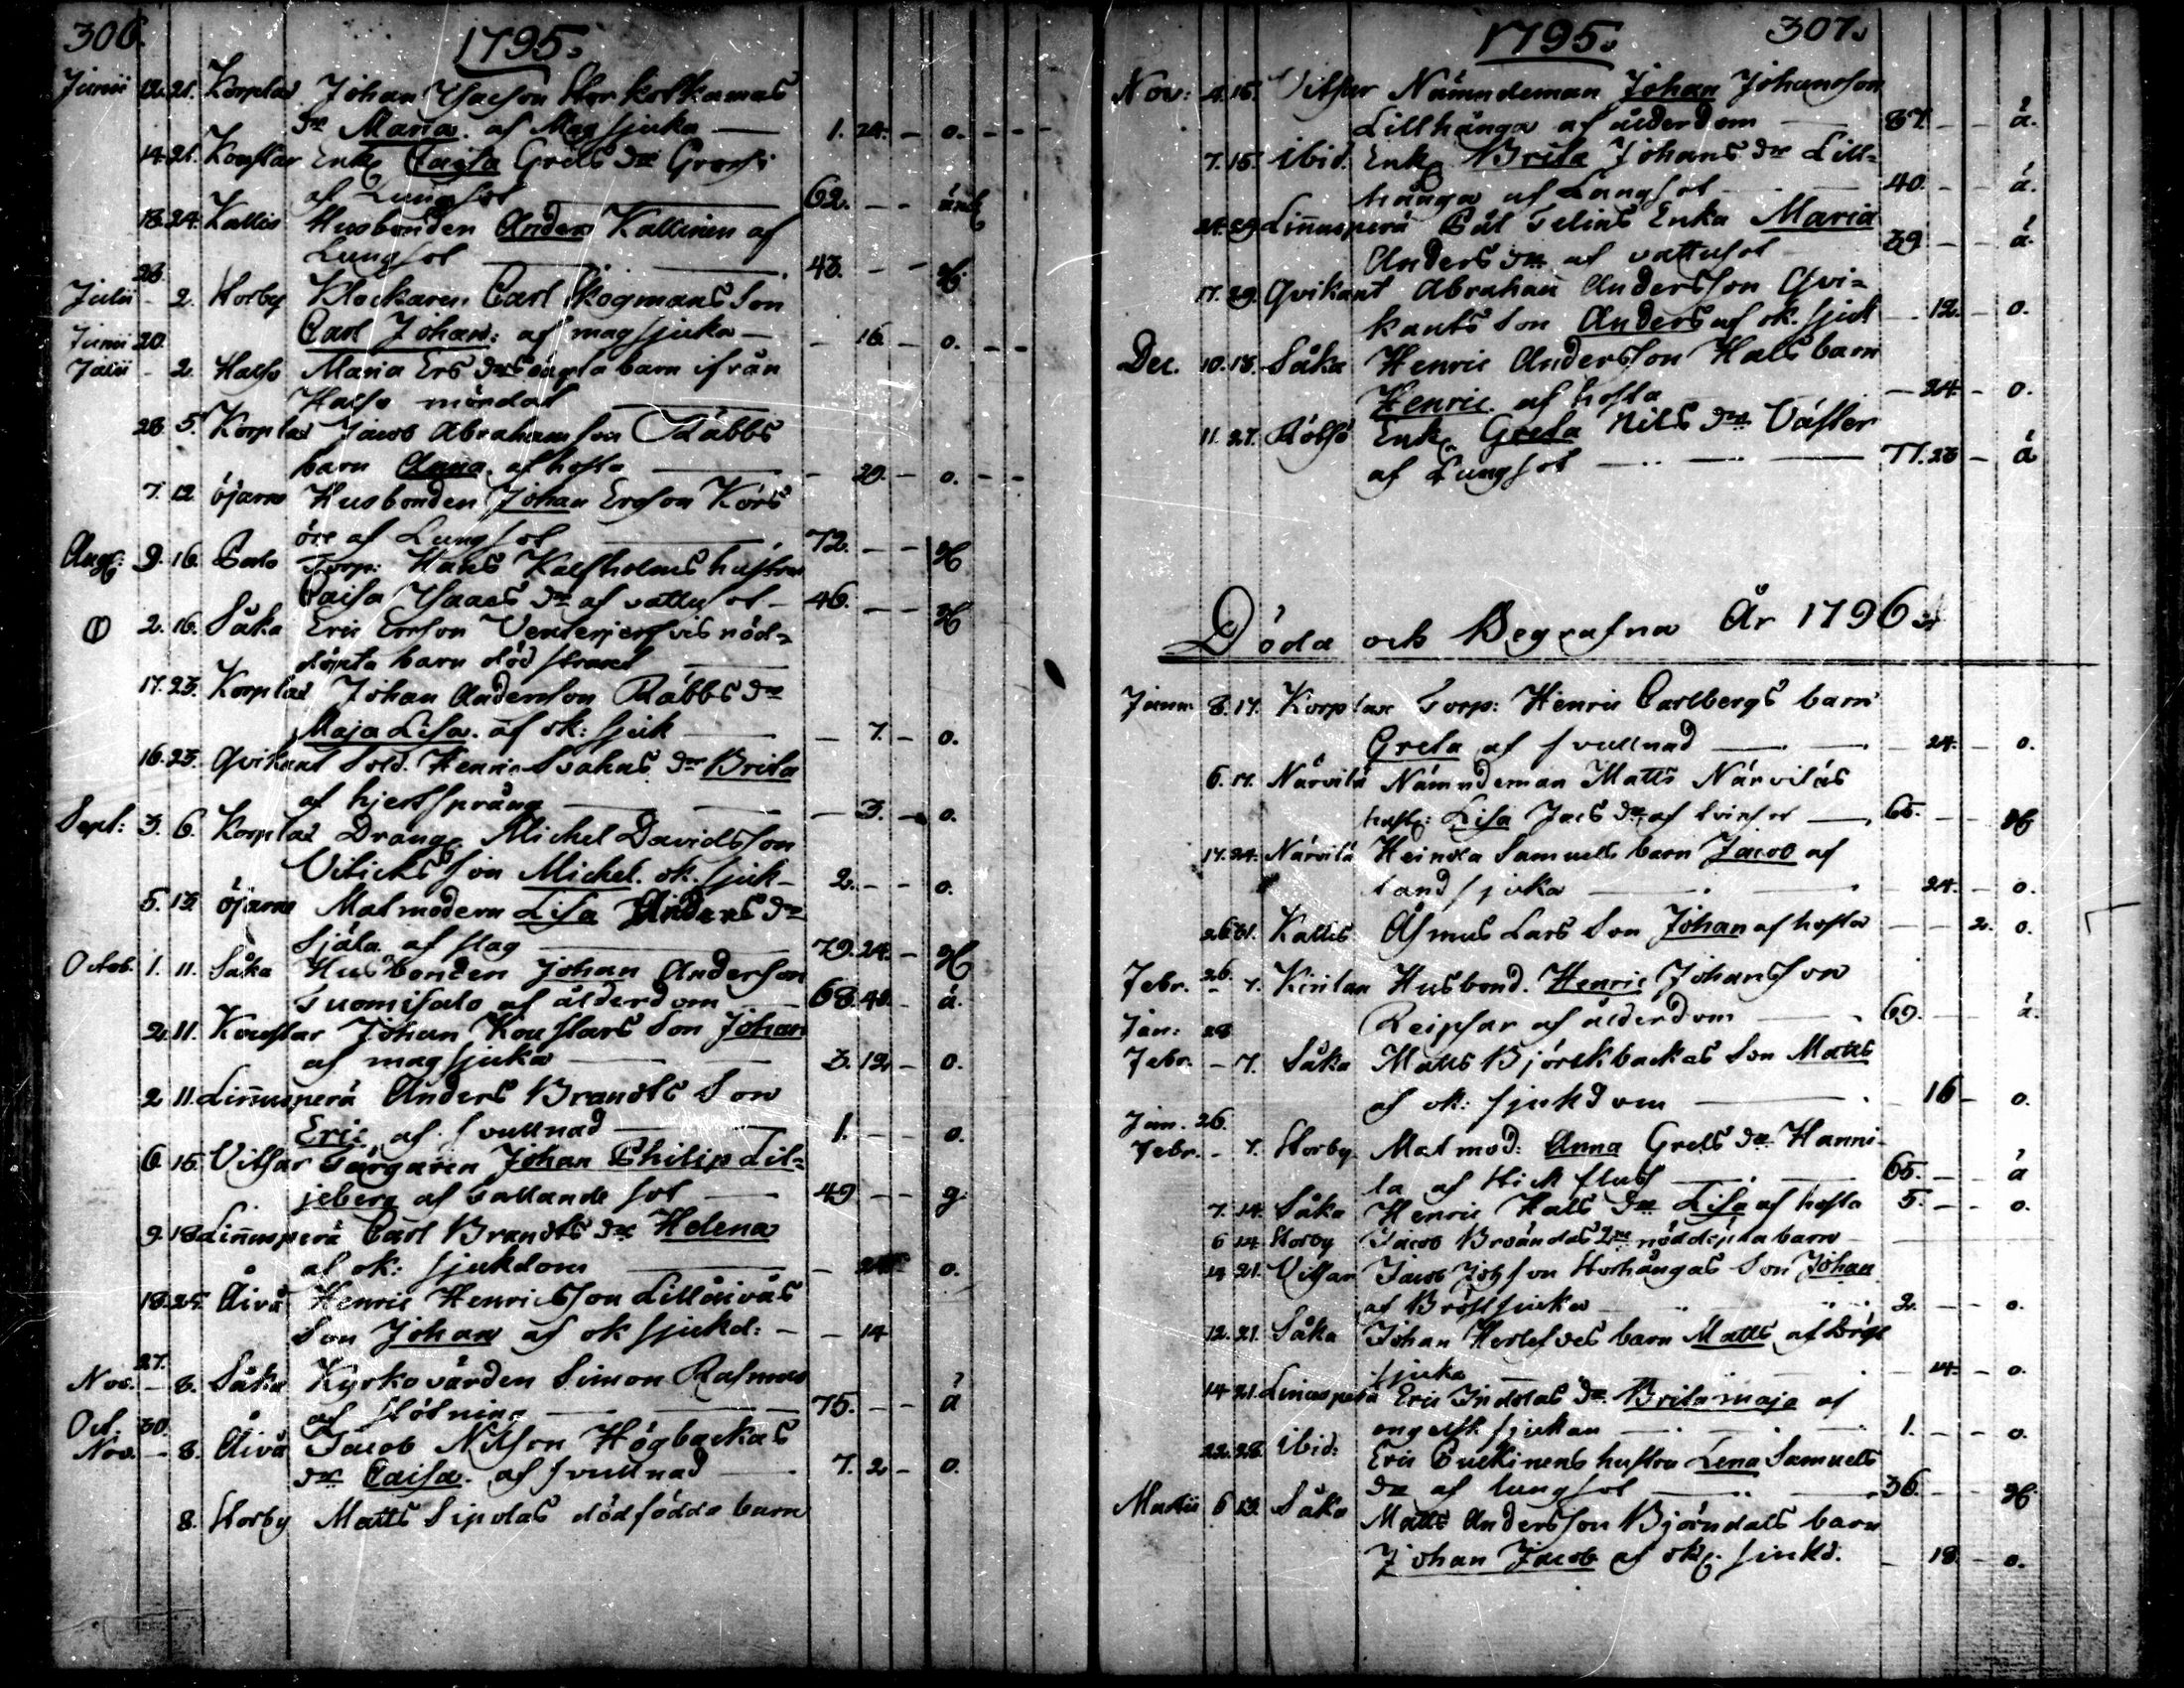 306.
1795.
Junii 12. 21. Korplax Johan Isacson Storkotkamas
dr Maria. af Magsjuka — 1. 24. - o.
14. 21. Koustar Enk. Caisa Grels dr
af Lungsot — 62. - - änk
18. 24. Kallis Husbonden Anders Kallinen af
Lungsot — 43. - - H
23.
Julii - 2. Storby Klockaren Carl Skogmans Son
Carl Johan: af magsjuka — - 16 - o.
Junii 20.
Julii - 2. Halso Maria Ers drs oägta barn ifrån
Halso
28. 5. Korplax Jacob Abrahamson Räbbs
barn Anna. af hosta — - 20. - o.
7. 12 öjarne Husbonden Johan Ersson Körs
öre af Lungsot — 72. - - H
Aug: 9. 16. Torp: Hans Kalfholms hustru
Caisa Isaacs dr af vattusot - 46. - - H
2. 16. Såka Eric Ersson nöd=
döpta barn död straxt —
17. 23. Korplax Johan Anderson Räbbs dr
Maja Lisa. af ok: sjuk — - 7. - o.
16. 23. Qvikant Sold. Henric Svahns dr Brita
af hjertsprång — - 3. - o.
Sept: 3. 6. Korplax Dräng. Michel Davidsson
Viticks son Michel. ok. sjuk - 2. - - o.
5. 13. öjarne Matmodern Lisa Anders dr
Själa af slag — 79. 24. - H
Octob. 1. 11. Såka Husbonden Johan Anderson
Tuomisalo af ålderdom — 68. 40. - á.
2. 11. Koustar Johan Koustars Son Johan
af magsjuka — 3. 12 - o.
2 11. Linnusperä Anders Brandts Son
Eric af svullnad — 1. - - o.
6 15. Vitsar Färgaren Johan Philip Lil=
jeberg af fallande sot — 49 - - g.
9. 18. Linnusperä Carl Brandts dr Helena
af ok: sjukdom — - - o.
18. 25. Åivå Henric Henricsson Lillåivås
Son Johan af ok sjukd: - - 14
27.
Nov. - 8. Såka Kyrkovärden Simon Rasmus
af stötning — 75. - - á
Oct. 30.
Nov. - 8. Åivå Jacob Nilson Högbackas
dr Caisa. af svullnad — 7. 2 - o.
8. Storby Matts Sipolas dödfödda barn
1795. 307.
Nov: 4. 15. Vitsar Nämndeman Johan Johanson
Lillhånga af ålderdom — 87. - - á.
7. 15. ibid. Enk. Brita Johans dr Lill=
hånga af Lungsot — 40. - - á.
24. 29 Linnusperä Pål Telins Enka Maria
Anders dr af vattusot - 39 - - á.
17. 29. Qvikant Abraham Andersson Qvi=
kants Son Anders af ok. sjuk - 12. - o.
Dec. 10. 18. Såka Henric Andersson Hals barn
Henric. af hosta — - 24. - o.
11. 27. Rölsö Enk. Greta Nils dr Väster
af Lungsot — 77. 23 - á
Döda och Begrafna År 1796
Januar 8. 17. Korplax Torp: Henric Carlbergs barn
Greta af svullnad — - 24. - o.
6. 17. Närvilä Nämndeman Matts Närviläs
hust: Lisa Jacs dr af tvinsot — 65. - - H
17. 24. Närvilä Heinola Samuels barn Jacob af
tandsjuka — - 24. - o.
26. 31. Kallis Åsmus Lars Son Johan af hosta - - 2. o.
Febr. 26. - 7. Kirilax Husbond. Henric Johansson
Reipsar af ålderdom — 69. - - á.
Jan: 28
Febr. - 7. Såka Matts Björckbackas Son Matts
af ok: sjukdom — - 16 - o.
Jan. 26.
Febr. - 7. Storby Matmod: Anna Grels dr Hanni-
la af Stickfluss — 65. - - á
7. 14. Såka Henric Hals dr Lisa af hosta 5. - - o.
6 14 Storby Jacob Broändas 2ne nöddöpta barn —
14 21. Vitsar Jacob Johsson Storhångas Son Johan
af Bröstsjuka — 2. - - o.
12. 21. Såka Johan Herlefves barn Matts af Bröst
sjuka — - 14 - o.
14 21. Linnusperä Eric Indolas dr Brita maja af
engelsk sjukan — 1. - - o.
22. 28. ibid: Eric Puckinens hustru Lena Samuels
dr af lungsot — 36. - - H
Martii 6 13. Såka Matts Andersson Björndals barn
Johan Jacob af ok: sjukd. - 18 - o.